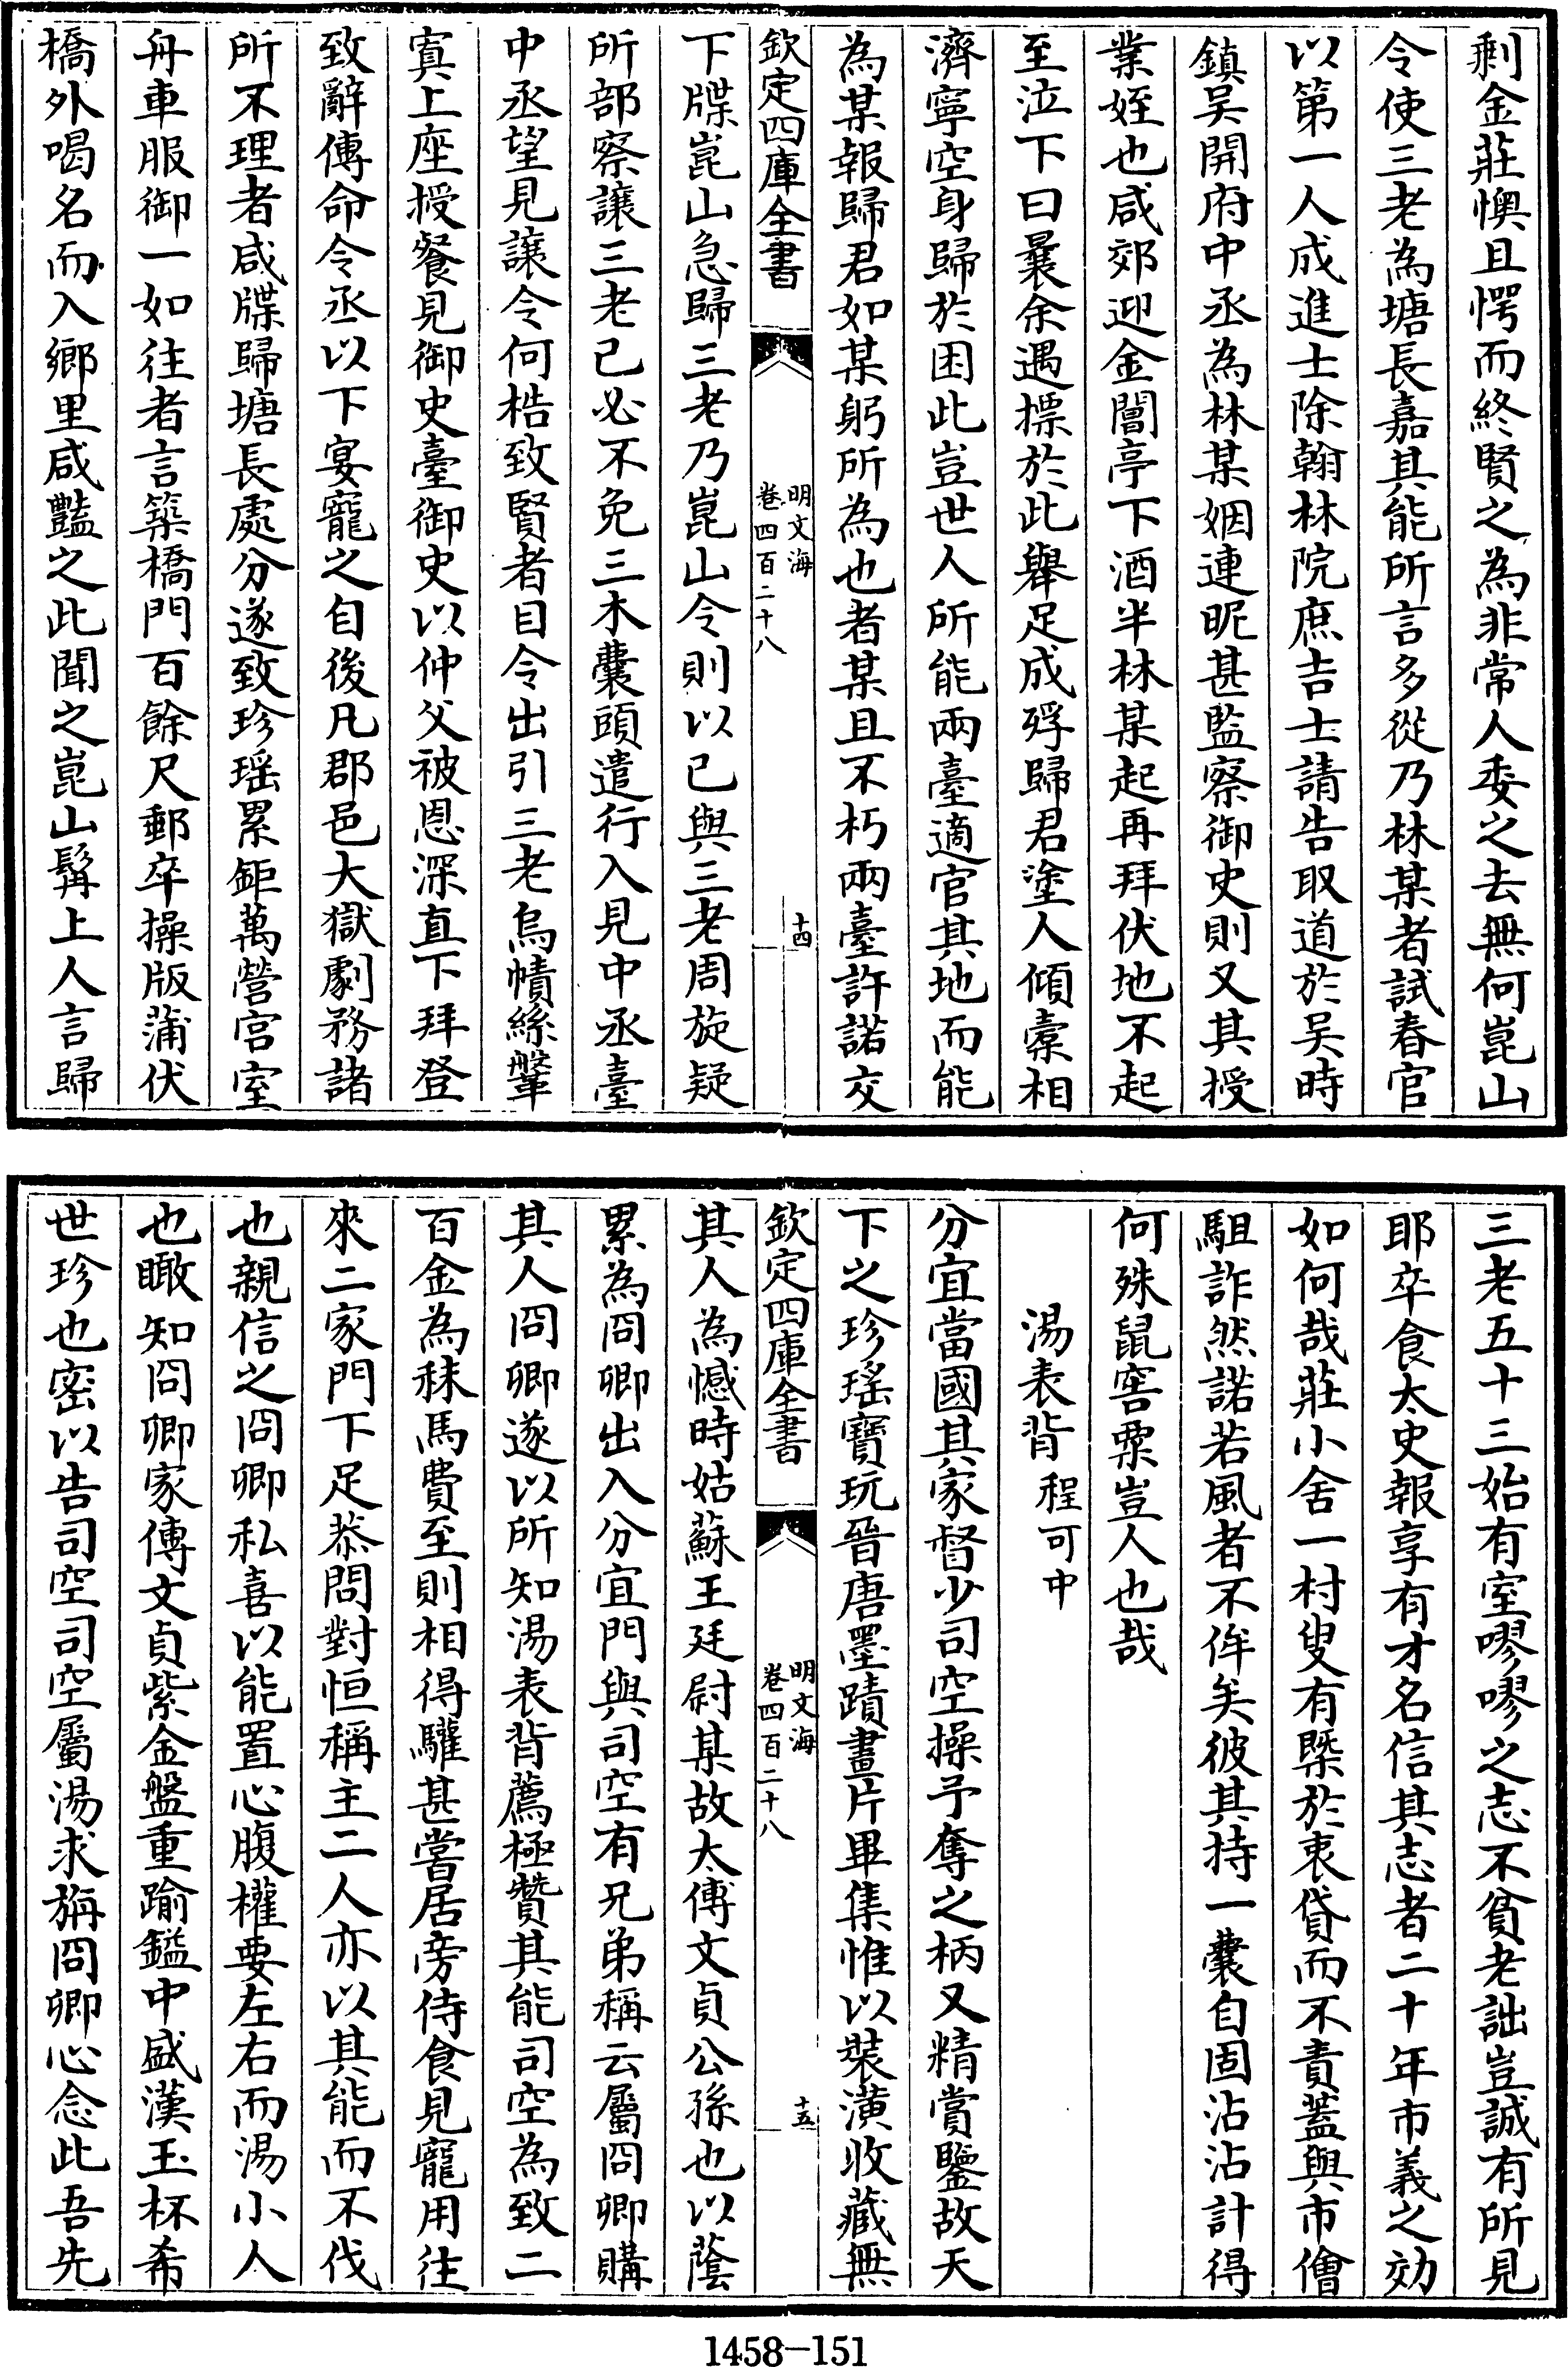 剩金莊懊且愕而終賢之為非常人委之去無何崑山
令使三老為塘長嘉其能所言多從乃林某者試春官
以第一人成進士除翰林院庶吉士請告取道於吳時
鎮吳開府中丞為林某姻連昵甚監察御史則又其授
業姪也咸郊迎金閶亭下酒半林某起再拜伏地不起
至泣下曰曩余遇摽於此舉足成殍歸君塗人傾橐相
濟寧空身歸於困此豈世人所能兩臺適官其地而能
為某報歸君如某躬所為也者某且不朽兩臺許諾交
欽定四庫全書
明文海
卷四百二十八
十四
下牒崑山急歸三老乃崑山令則以已與三老周旋疑
所部察讓三老己必不免三木囊頭遣行入見中丞臺
中丞望見讓令何梏致賢者目令出引三老烏幘絲鞶
寘上座授餐見御史臺御史以仲父被恩深直下拜登
致辭傳命令丞以下宴寵之自後凡郡邑大獄劇務諸
所不理者咸牒歸塘長處分遂致珍瑶累鉅萬營宫室
舟車服御一如往者言築橋門百餘尺郵卒操版蒲伏
橋外喝名而入鄉里咸豔之此聞之崑山髯上人言歸
三老五十三始有室嘐嘐之志不貧老詘豈誠有所見
耶卒食太史報享有才名信其志者二十年市義之効
如何哉莊小舍一村叟有槩於衷貸而不責蓋與市儈
駔詐然諾若風者不侔矣彼其持一囊自固沾沾計得
何殊鼠窖粟豈人也哉
湯表背 程可中
分宜當國其家督少司空操予奪之柄又精賞鑒故天
下之珍瑤寶玩晉唐墨蹟畫片畢集惟以裝潢收藏無
欽定四庫全書
明文海
卷四百二十八
十五
其人為憾時姑蘇王廷尉某故太傅文貞公孫也以蔭
累為冏卿出入分宜門與司空有兄弟稱云屬冏卿購
其人冏卿遂以所知湯表背薦極贊其能司空為致二
百金為秣馬費至則相得驩甚嘗居旁侍食見寵用往
來二家門下足恭問對恒稱主二人亦以其能而不伐
也親信之冏卿私喜以能置心腹權要左右而湯小人
也瞰知冏卿家傳文貞紫金盤重踰鎰中盛漢玉杯希
世珍也密以告司空司空屬湯求旃冏卿心念此吾先
1458-151